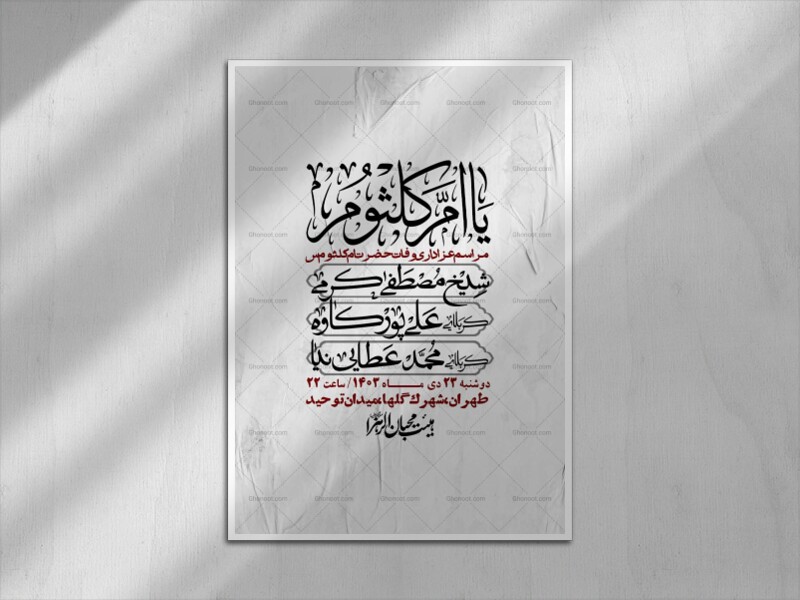 یا ام کلثوم
مراسم عزاداری وفات حضرت ام کلثوم س
شیخ مصطفی کرمی
کربلایی علی پورکاوه
کربلایی محمد عطایی نیا
دوشنبه ۲۳ دی مـاه ۱۴۰۳ / ساعت ۲۲
طهران، شهرک گلها، میدان توحید
هیئت محبان الزهرا
Ghonoot.com